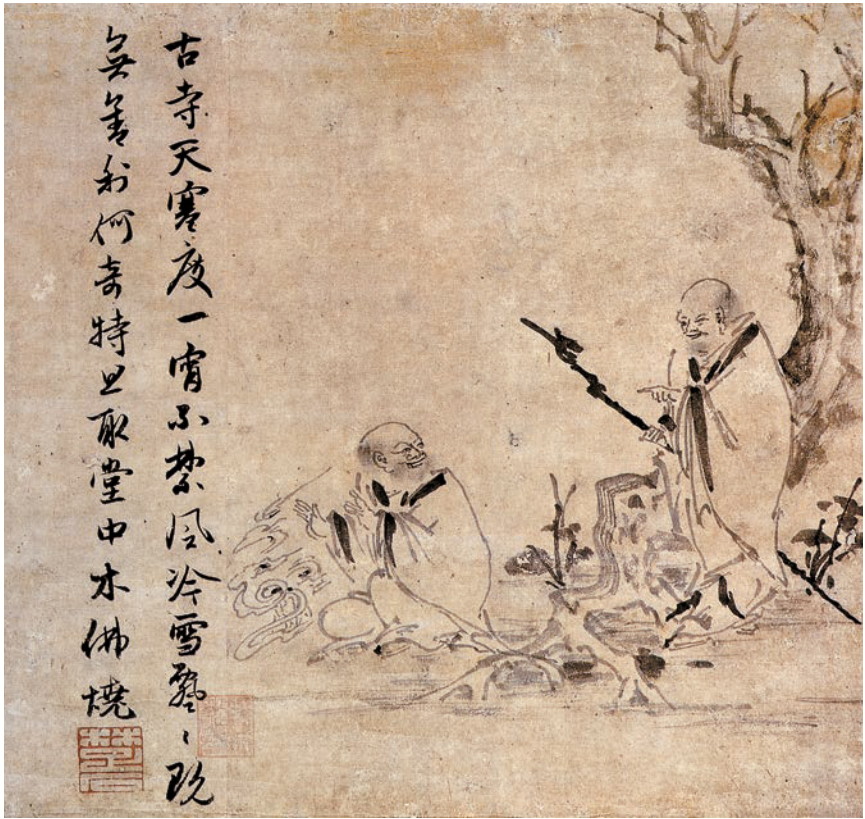 古寺天寒度一宵不禁風冷雪飄〻既
無舍利何奇特且取堂中木佛燒
楚石